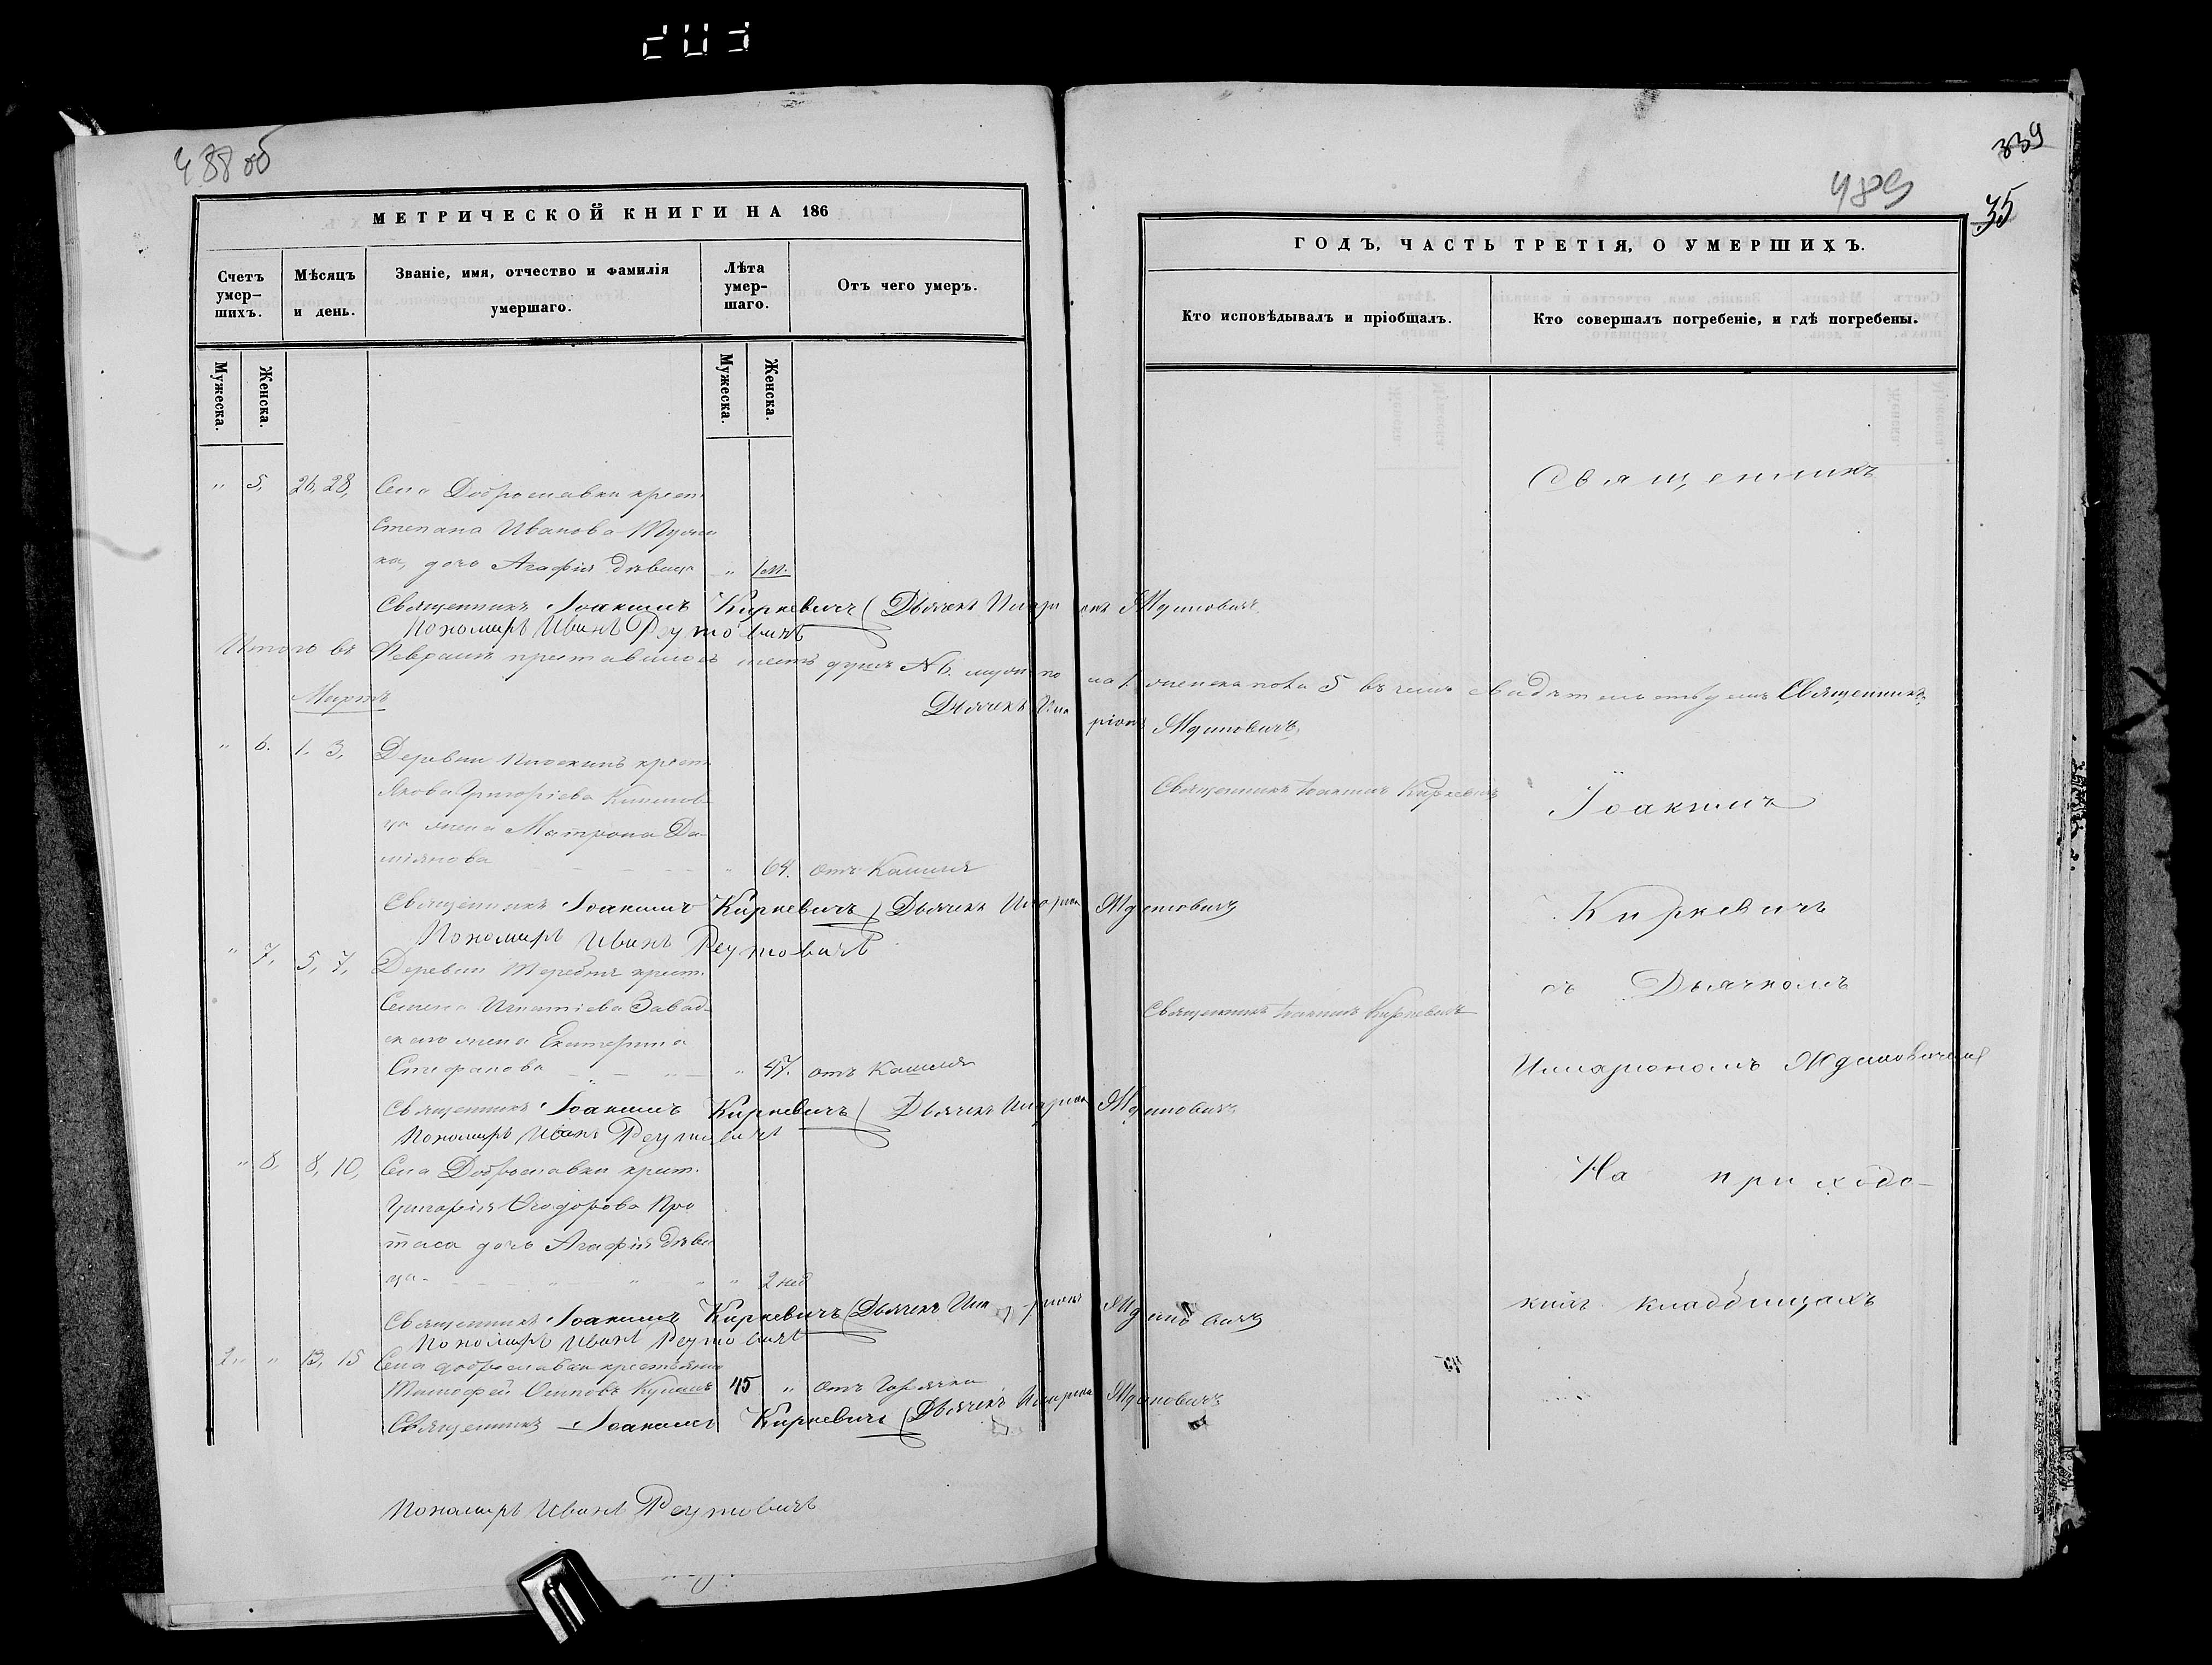 488 об
МЕТРИЧЕСКОЙ КНИГИ НА 186
Счетъ умер-шихъ.
Мѣсяцъ и день.
Званіе, имя, отчество и фамилія умершаго.
Лѣта умер-шаго.
Отъ чего умеръ.
Мужеска.
Женска.
Мужеска.
Женска.
„ 5, 26, 28, Села Доброславки крест.
Степана Иванова
ка, дочь Агафія дѣвица „ 1 м.
Священникъ Іоакимъ Киркевичъ Дьячекъ Иларіонъ Ждановичъ
Пономарь Иванъ Реутовичъ
Итого въ Февралѣ преставилось шесть душъ № 6. мужеска пола 1. женска пола 5 въ чемъ свидѣтельствуемъ Священникъ
Мартъ
Дьячекъ Иларіонъ Ждановичъ
„ 6. 1, 3, Деревни крест.
Якова Григоріева
ца жена Матрона Да-
міянова „ 64. отъ Кашля
Священникъ Іоакимъ Киркевичъ Дьячекъ Иларіон Ждановичъ
Пономарь Иванъ Реутовичъ
„ 7, 5, 7, Деревни Теребня крест.
Семена Игнатіева Завад-
скаго жена Екатерина
Стефанова „ 47. отъ Кашля
Священникъ Іоакимъ Киркевичъ Дьячекъ Иларіон Ждановичъ
Пономарь Иванъ Реутовичъ
„ 8, 8, 10, Села Доброславки крест.
Григорія Ѳеодорова Про
таса дочь Агафія дѣви
ца „ 2 нед
Священникъ Іоакимъ Киркевичъ Дьячекъ Иларіонъ Ждановичъ
Пономарь Иванъ Реутовичъ
2 „ 13, 15 Села Доброславки крестьянинъ
Тимофей Осиповъ 45 „ отъ Горячки
Священникъ Іоакимъ Киркевичъ Дьячекъ Иларіон Ждановичъ
Пономарь Иванъ Реутовичъ
339
489
35
ГОДЪ, ЧАСТЬ ТРЕТІЯ, О УМЕРШИХЪ.
Кто исповѣдывалъ и пріобщалъ.
Кто совершалъ погребеніе, и гдѣ погребены.
Священникъ
Священникъ Іоакимъ Киркевичъ
Іоакимъ
Киркевичъ
съ Дьячкомъ
Священникъ Іоакимъ Киркевичъ
Иларіономъ Ждановичемъ
На приходс-
кихъ кладбищахъ